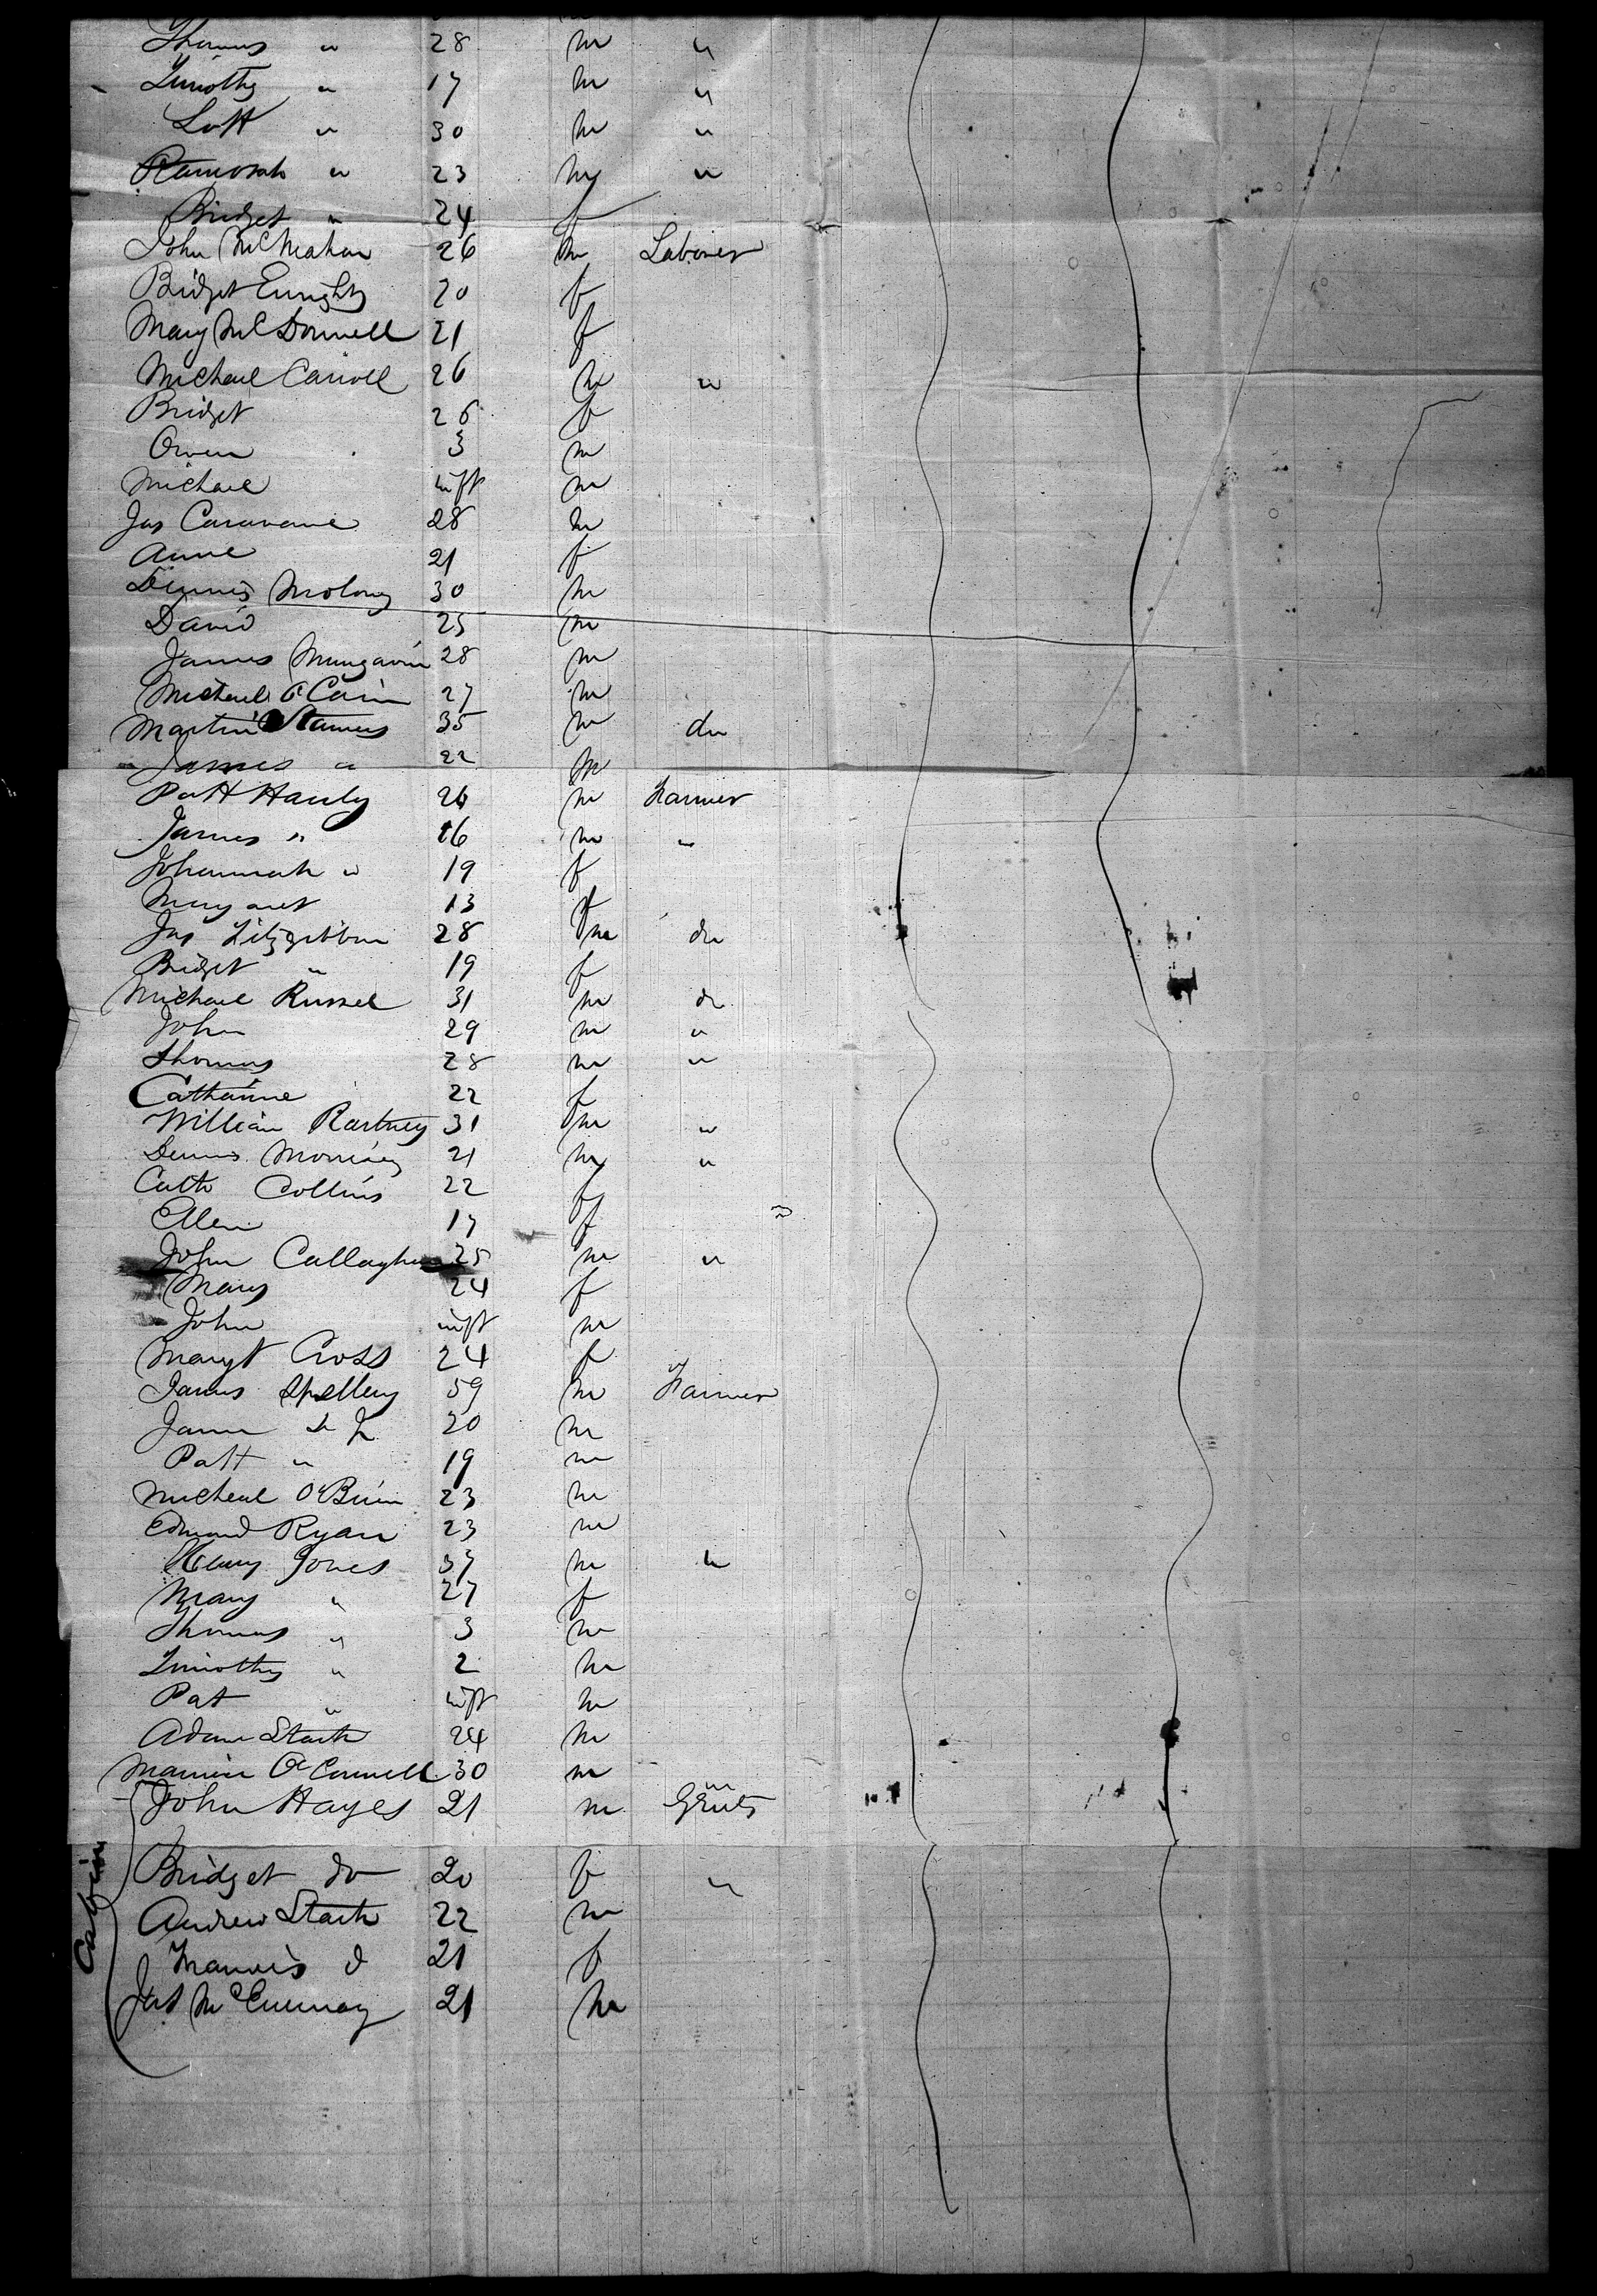 Thomas " 28 m "
Timothy " 17 m "
Patt " 30 m "
" 23 m "
Bridget " 24 f
John McMahon 26 m Laborer
Bridget Enright 20 f
Mary McDonnell 21 f
Michael Carroll 26 m "
Bridget 26 f
Owen 3 m
Michael inft m
Jas Caravane 28 m
Anne 21 f
Dennis Molony 30 m
David 25 m
James Mungavin 28 m
Michael 27 m
Martin 35 m do
James " 22 m
Patt Hanly 26 m Farmer
James " 16 m "
Johannah " 19 f
Margaret 13 f
Jas Fitzgibbon 28 m do
Bridget " 19 f
Michael Russel 31 m do
John 29 m "
Thomas 28 m "
Catharine 22 f
William 31 m "
Dennis 21 m "
Cath Collins 22 f
Ellen 17 f "
John Callaghan 25 m "
Mary 24 f
John inft m
Margt Cross 24 f
James Spellery 59 m Farmer
James do Jr 20 m
Patt " 19 m
Michael O'Brien 23 m
Edmond Ryan 23 m
Henry Jones 37 m "
Mary " 27 f
Thomas " 3 m
Timothy " 2 m
Pat " inft m
Adam Stack 24 m
O'Connell 30 m
John Hayes 21 m Gents
Cabin
Bridget do 20 f "
Andrew Stack 22 m
d 21 f
21 m